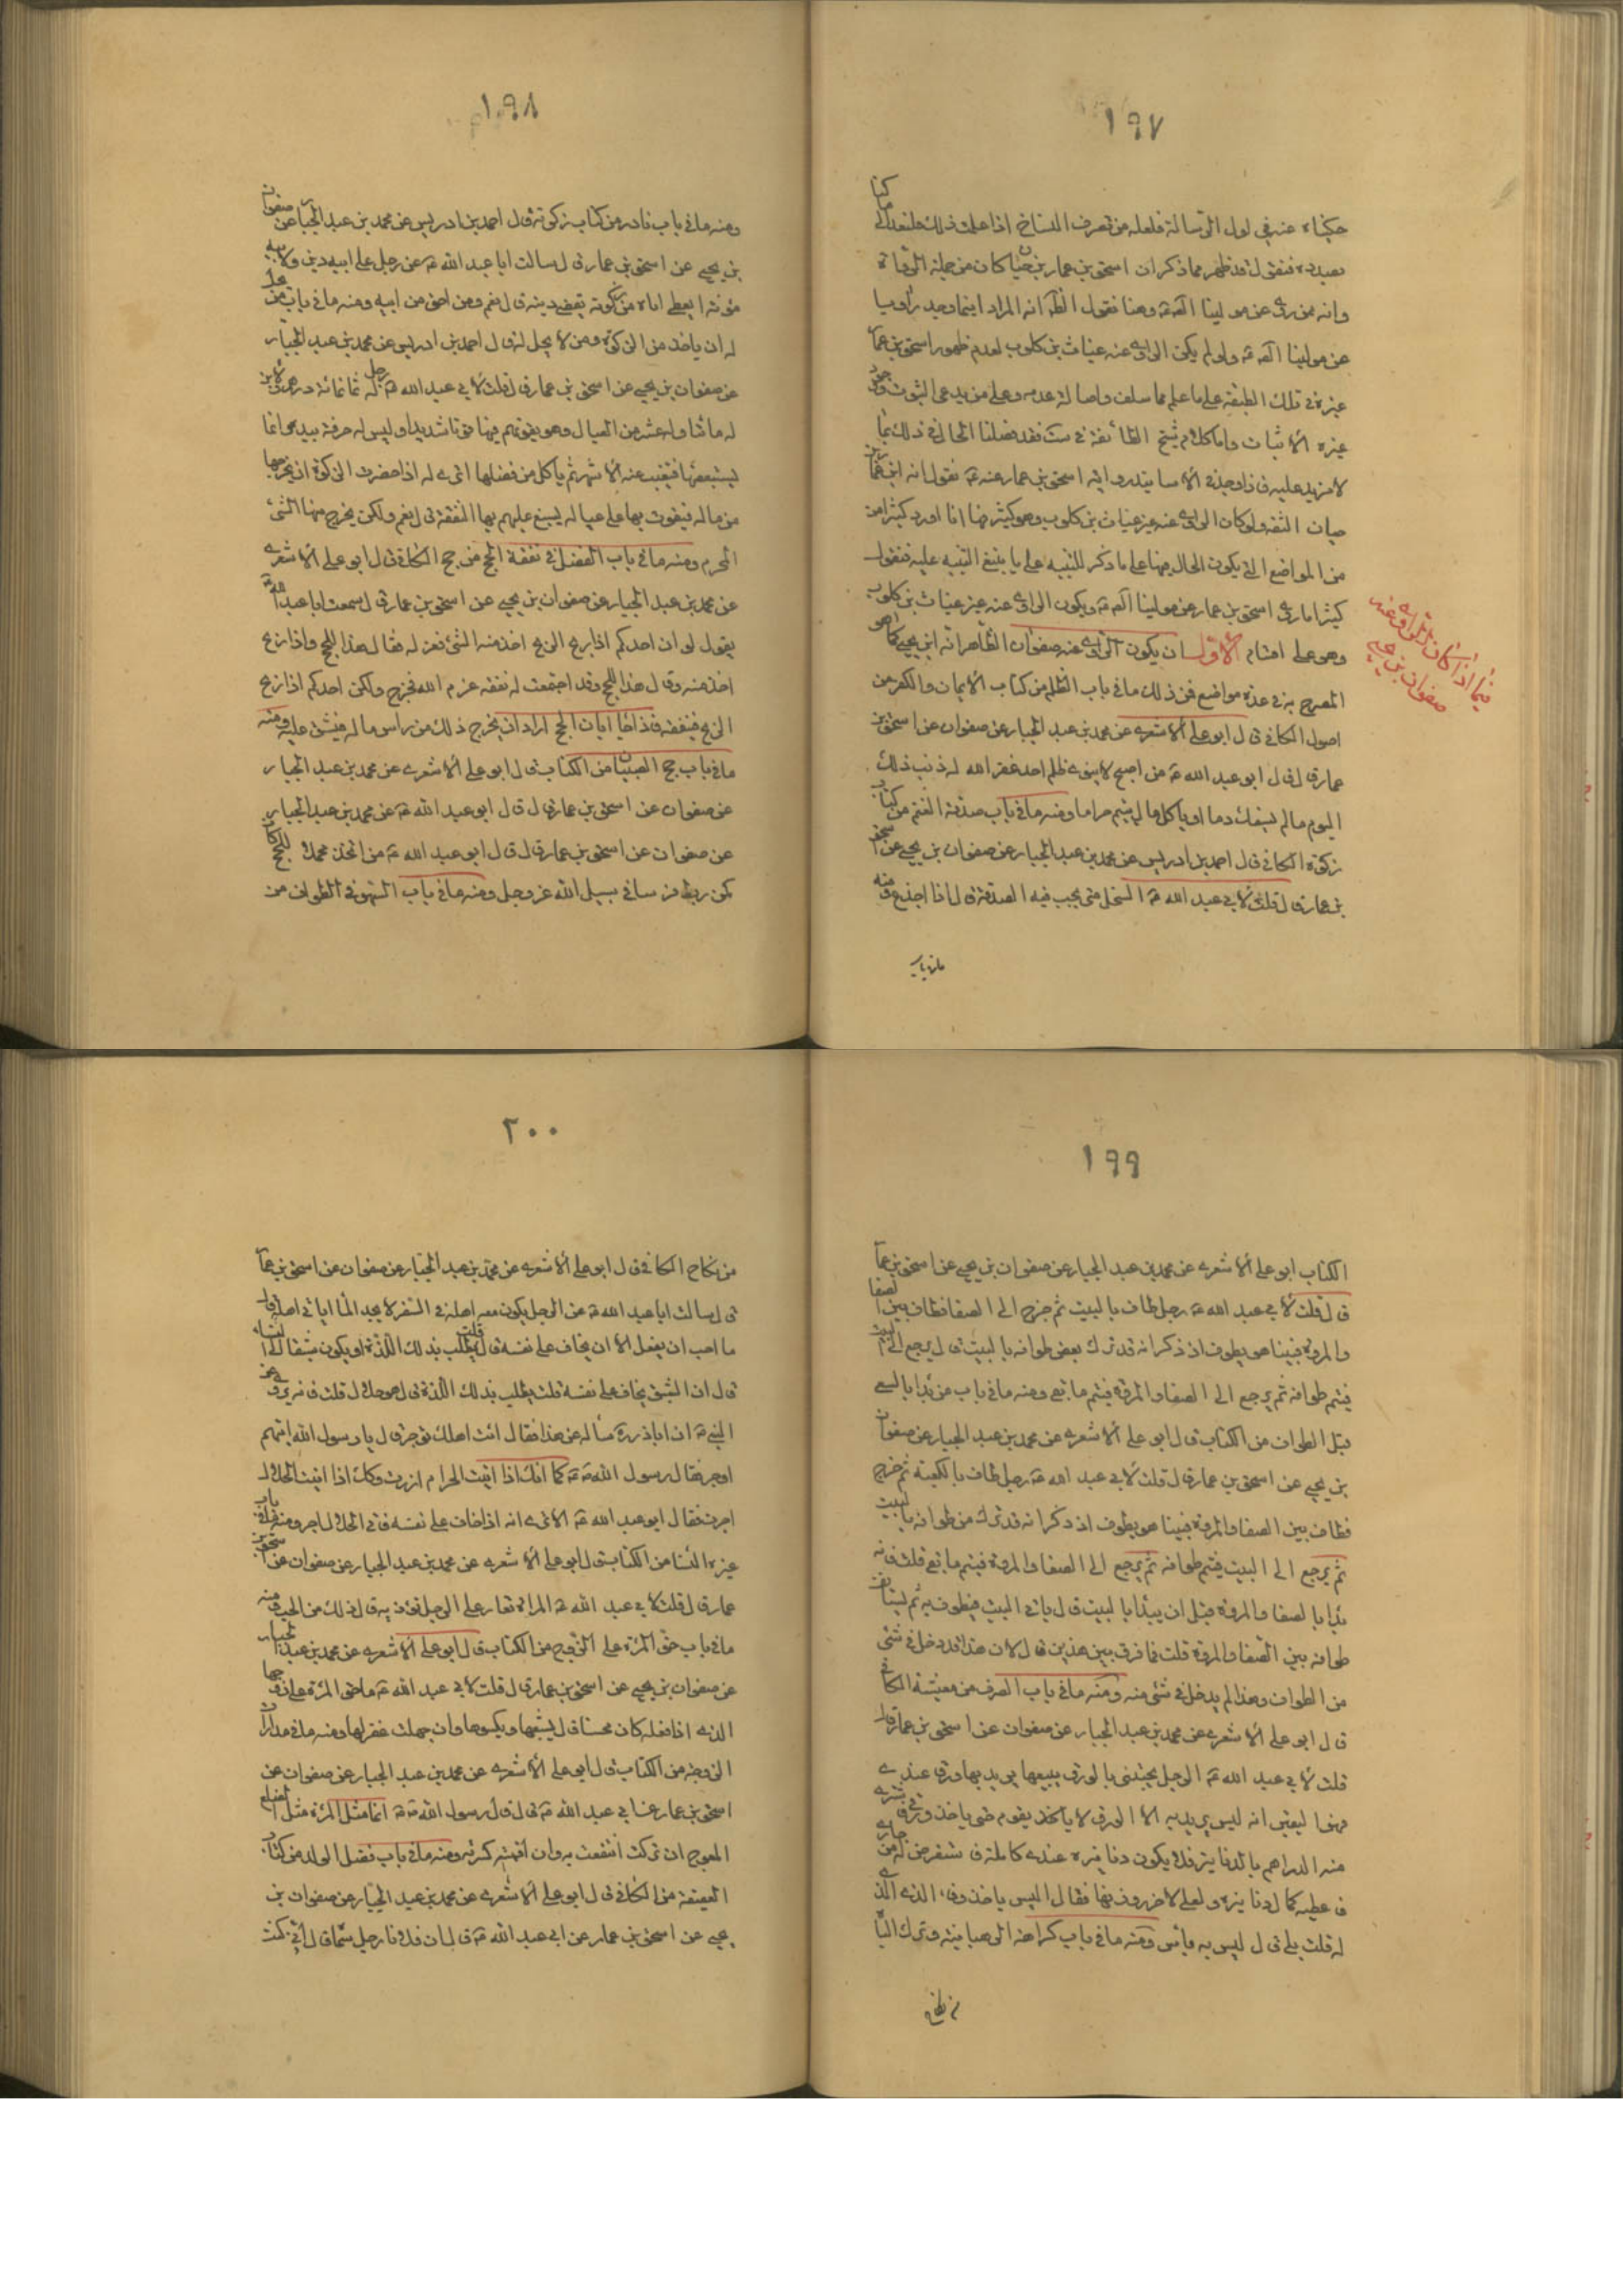 ١٩٧
حكيناه عنه في اول الرسالة فلعله من تصرف النساخ اذا علمت ذلك فلنعد الى ما كنا
بصدده فنقول قد ظهر مما ذكر ان اسحق بن عمار بن حيان كان من جملة الرواة
وانه ممن روى عن موالينا الامة ع وهنا نقول الظ انه المراد اينما وجد راويا
عن موالينا الامة ع ولو لم يكن الراوى عنه غياث بن كلوب لعدم ظهور اسحق بن عمار
غيره في تلك الطبقة على ما علم مما سلف واصالة عدمه وعلى من يدعى الثبوت وجود
غيره الاثبات واما كلام شيخ الطائفة في ست فقد فصلنا الحال في ذلك بما
لا مزيد عليه فاذا وجد في الاسانيد رواية اسحق بن عمار عنه ع نقول انه ابن عمار بن
حيان الثقة ولو كان الراوى عنه غير غياث بن كلوب وهو كثير منها انا اورد كثيرا من
من المواضع التي يكون الحال فيها على ما ذكر للتنبيه على ما ينبغي التنبيه عليه فنقول
كثيرا ما روى اسحق بن عمار عن موالينا الامة ع ويكون الراوى عنه غير غياث بن كلوب
وهو على اقسام الاول ان يكون الراوى عنه صفوان الظاهر انه ابن يحيى كما هو
فيما اذا كان الراوى عنه
صفوان بن يحيى
المصرح به في عدة مواضع فمن ذلك ما في باب الظلم من كتاب الايمان والكفر من
اصول الكافي قال ابو على الاشعرى عن محمد بن عبد الجبار عن صفوان عن اسحق بن
عمار قال قال ابو عبد الله ع من اصبح لا ينوى ظلم احد غفر الله له ذنب ذلك
اليوم ما لم يسفك دما او ياكل مال يتيم حراما ومنه ما في باب صدقة الغنم من كتاب
زكوة الكافي قال احمد بن ادريس عن محمد بن عبد الجبار عن صفوان بن يحيى عن اسحق
بن عمار قال قلت لابي عبد الله ع السخل متى يجب فيه الصدقة قال اذا اجذع ومنه
ما في باب
١٩٨
ومنه ما في باب نادر من كتاب زكوته قال احمد بن ادريس عن محمد بن عبد الجبار عن صفوان
بن يحيى عن اسحق بن عمار قال سالت ابا عبد الله ع عن رجل على ابيه دين ولابيه
مؤنة ايعطى اباه من زكوته يقضى دينه قال نعم ومن احق من ابيه ومنه ما في باب من يحل
له ان ياخذ من الزكوة ومن لا يحل له قال احمد بن ادريس عن محمد بن عبد الجبار
عن صفوان بن يحيى عن اسحق بن عمار قال قلت لابي عبد الله ع رجل له ثمانمائة درهم ولابن
له مائتا وله عشر من العيال وهو يقوتهم فيها قوتا شديدا وليس له حرفة بيده وانما
يستبضعها فتغيب عنه الاشهر ثم ياكل من فضلها اترى له اذا حضرت الزكوة ان يخرجها
من ماله فيقوت بها على عياله يسبغ عليهم بها النفقة قال نعم ولكن يخرج منها الشئ
الدرهم ومنه ما في باب الفضل في نفقة الحج من حج الكافي قال ابو على الاشعرى
عن محمد بن عبد الجبار عن صفوان بن يحيى عن اسحق بن عمار قال سمعت ابا عبد الله ع
يقول لو ان احدكم اذا ربح الربح اخذ منه الشئ فعزله فقال هذا للحج واذا ربح
اخذ منه وقال هذا للحج وقد اجتمعت له نفقة عزم الله فخرج ولكن احدكم اذا ربح
الربح فينفقه فاذا جاء ابان الحج اراد ان يخرج ذلك من راس ماله فيشق عليه ومنه
ما في باب حج الصبيان من الكتاب قال ابو على الاشعرى عن محمد بن عبد الجبار
عن صفوان عن اسحق بن عمار قال قال ابو عبد الله ع عن محمد بن عبد الجبار
عن صفوان عن اسحق بن عمار قال قال ابو عبد الله ع من اتخذ محملا للحج كان
كمن ربط فرسا في سبيل الله عز وجل ومنه ما في باب السهو في الطواف من
١٩٩
الكتاب ابو على الاشعرى عن محمد بن عبد الجبار عن صفوان بن يحيى عن اسحق بن عمار
قال قلت لابي عبد الله ع رجل طاف بالبيت ثم خرج الى الصفا فطاف بين الصفا
والمروة فبينا هو يطوف اذ ذكر انه قد ترك بعض طوافه بالبيت قال يرجع الى البيت
فيتم طوافه ثم يرجع الى الصفا والمروة فيتم ما بقى ومنه ما في باب من بدا بالسعى
قبل الطواف من الكتاب قال ابو على الاشعرى عن محمد بن عبد الجبار عن صفوان
بن يحيى عن اسحق بن عمار قال قلت لابي عبد الله ع رجل طاف بالكعبة ثم خرج
فطاف بين الصفا والمروة فبينا هو يطوف اذ ذكر انه قد ترك من طوافه بالبيت
ثم يرجع الى البيت فيتم طوافه ثم يرجع الى الصفا والمروة فيتم ما بقى قلت فانه
بدا بالصفا والمروة قبل ان يبدا بالبيت قال ياتي البيت فيطوف به ثم يستانف
طوافه بين الصفا والمروة قلت فما فرق بين هذين قال لان هذا قد دخل في شئ
من الطواف وهذا لم يدخل في شئ منه ومنه ما في باب الصرف من معيشة الكافي
قال ابو على الاشعرى عن محمد بن عبد الجبار عن صفوان عن اسحق بن عمار قال
قلت لابي عبد الله ع الرجل يجيئنى بالورق يبيعها يريد بها ورق عندى
فهو اليقين انه ليس يريد به الا الورق لا ياخذ يقوم حتى ياخذ ورقي فيشترى
منه الدراهم بالدنانير فلا يكون دنانيره عندى كاملة فاستقرض له من جارى
فاعطيه كمال دنانيره ولعلى لا احرز وزنها فقال اليس ياخذ وفاء الذى الذى
له قلت بلى قال ليس به باس ومنه ما في باب كراهة الرهبانية وترك الباه
من نكاح
٢٠٠
من نكاح الكافي قال ابو على الاشعرى عن محمد بن عبد الجبار عن صفوان عن اسحق بن عمار
قال سالت ابا عبد الله ع عن الرجل يكون معه اهله في السفر لا يجد الماء ياتي اهله قال
ما احب ان يفعل الا ان يخاف على نفسه قال قلت يطلب بذلك اللذة او يكون شبقا الى النساء
قال ان الشبق يخاف على نفسه قلت يطلب بذلك اللذة قال هو حلال قلت فانه يروى عن
النبي ص ان اباذر ره سأله عن هذا فقال ائت اهلك تؤجر قال يا رسول الله اتيتهم
اوجر فقال رسول الله ص كما انك اذا اتيت الحرام ازرت وكك اذا اتيت الحلال
اجرت فقال ابو عبد الله ع الا ترى انه اذا خاف على نفسه فاتى الحلال اجر ومنه ما في باب
غيرة النساء من الكتاب قال ابو على الاشعرى عن محمد بن عبد الجبار عن صفوان عن اسحق بن
عمار قال قلت لابي عبد الله ع المراة تغار على الرجل تؤذيه قال ذلك من الحب ومنه
ما في باب حق المرءة على الزوج من الكتاب قال ابو على الاشعرى عن محمد بن عبد الجبار
عن صفوان بن يحيى عن اسحق بن عمار قال قلت لابي عبد الله ع ما حق المرءة على زوجها
الذى اذا فعله كان محسنا قال يشبعها ويكسوها وان جهلت غفر لها ومنه ما في مداراة
الزوجة من الكتاب قال ابو على الاشعرى عن محمد بن عبد الجبار عن صفوان عن
اسحق بن عمار عن ابي عبد الله ع قال قال رسول الله ص انما مثل المرءة مثل الضلع
المعوج ان تركته انتفعت به وان اقمته كسرته ومنه ما في باب فضل الولد من كتاب
العقيقة من الكافي قال ابو على الاشعرى عن محمد بن عبد الجبار عن صفوان بن
يحيى عن اسحق بن عمار عن ابي عبد الله ع قال ان فلانا رجل سماه قال انى كنت